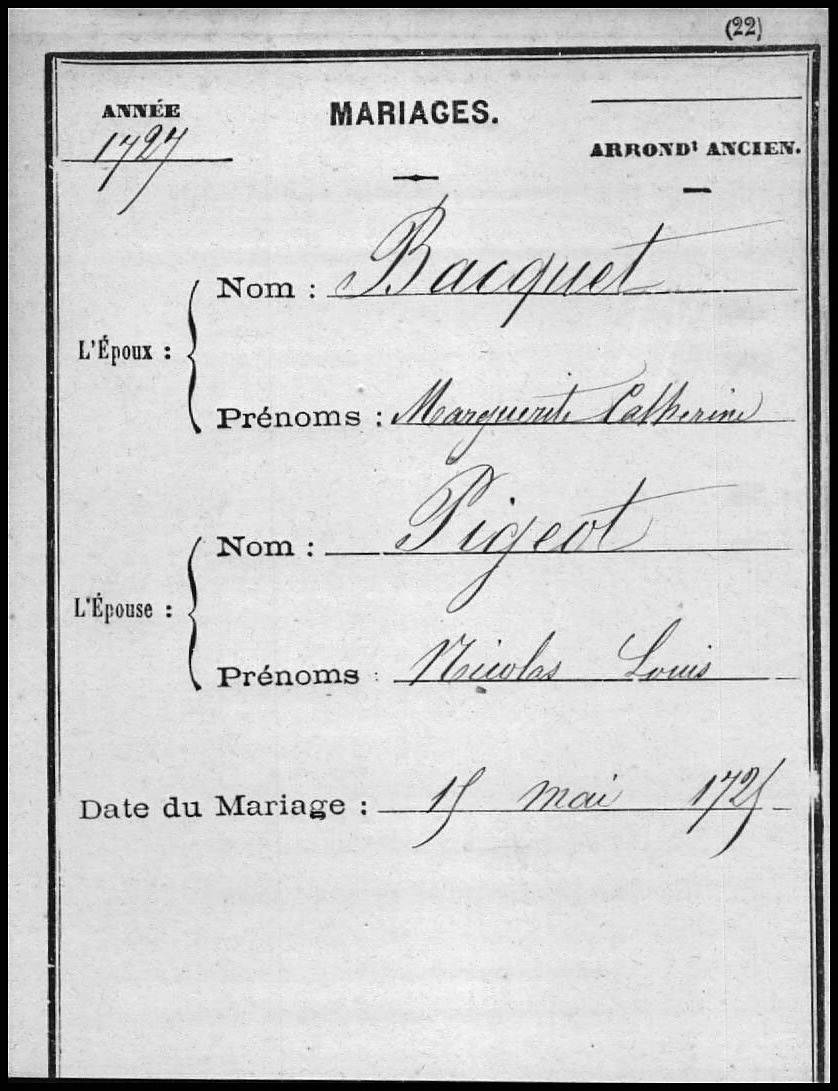 (22)
ANNÉE
1727
MARIAGES.
ARRONDt ANCIEN.
L'Époux :
Nom : Bacquet
Prénoms : Marguerite Catherine
L'Épouse :
Nom : Pigeot
Prénoms : Nicolas Louis
Date du Mariage : 15 mai 1725